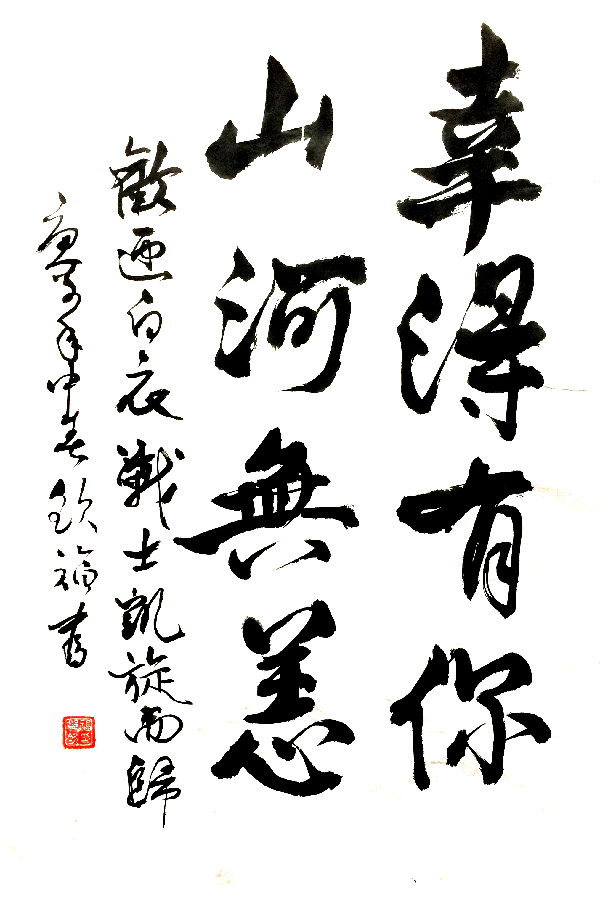 幸得有你
山河無恙
歡迎白衣戰士凱旋而歸
庚子年中春欽福書